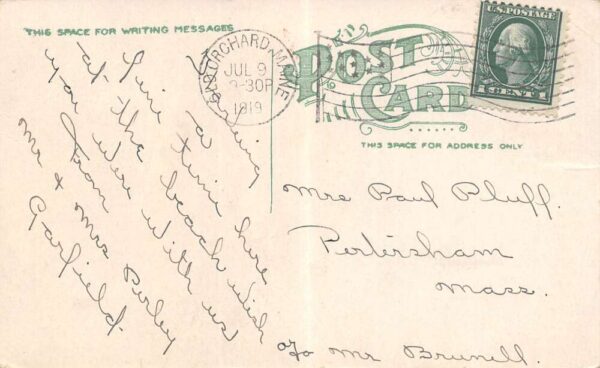 THIS SPACE FOR WRITING MESSAGES
Having
Fine a time here
at the beach wish
you were with us
From
Mr & Mrs Perley
Garfield
OLD ORCHARD, MAINE
JUL 9
-30P
1919
POST
CARD
U.S. POSTAGE
1 CENT 1
THIS SPACE FOR ADDRESS ONLY
Mrs Paul Pluff.
Petersham
Mass.
c/o Mr Brunell.